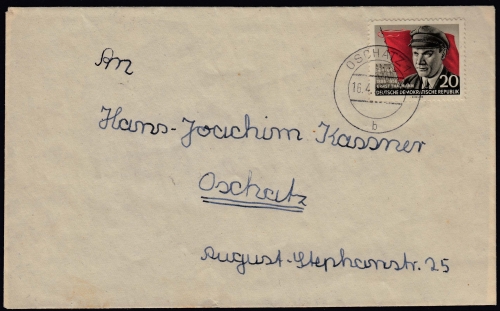 OSCHATZ
16.4.
b
20
ERNST THÄLMANN
DEUTSCHE DEMOKRATISCHE REPUBLIK
An
Hans-Joachim Kassner
Oschatz
August-Stephanstr. 25